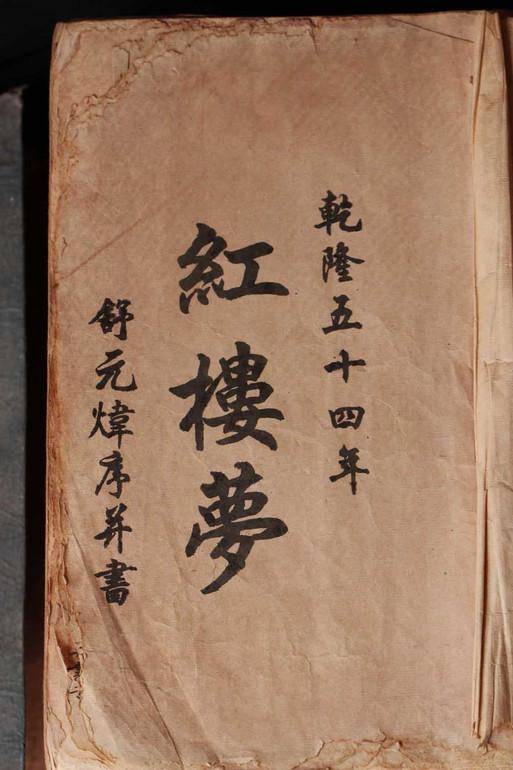 乾隆五十四年
紅樓夢
舒元煒序并書